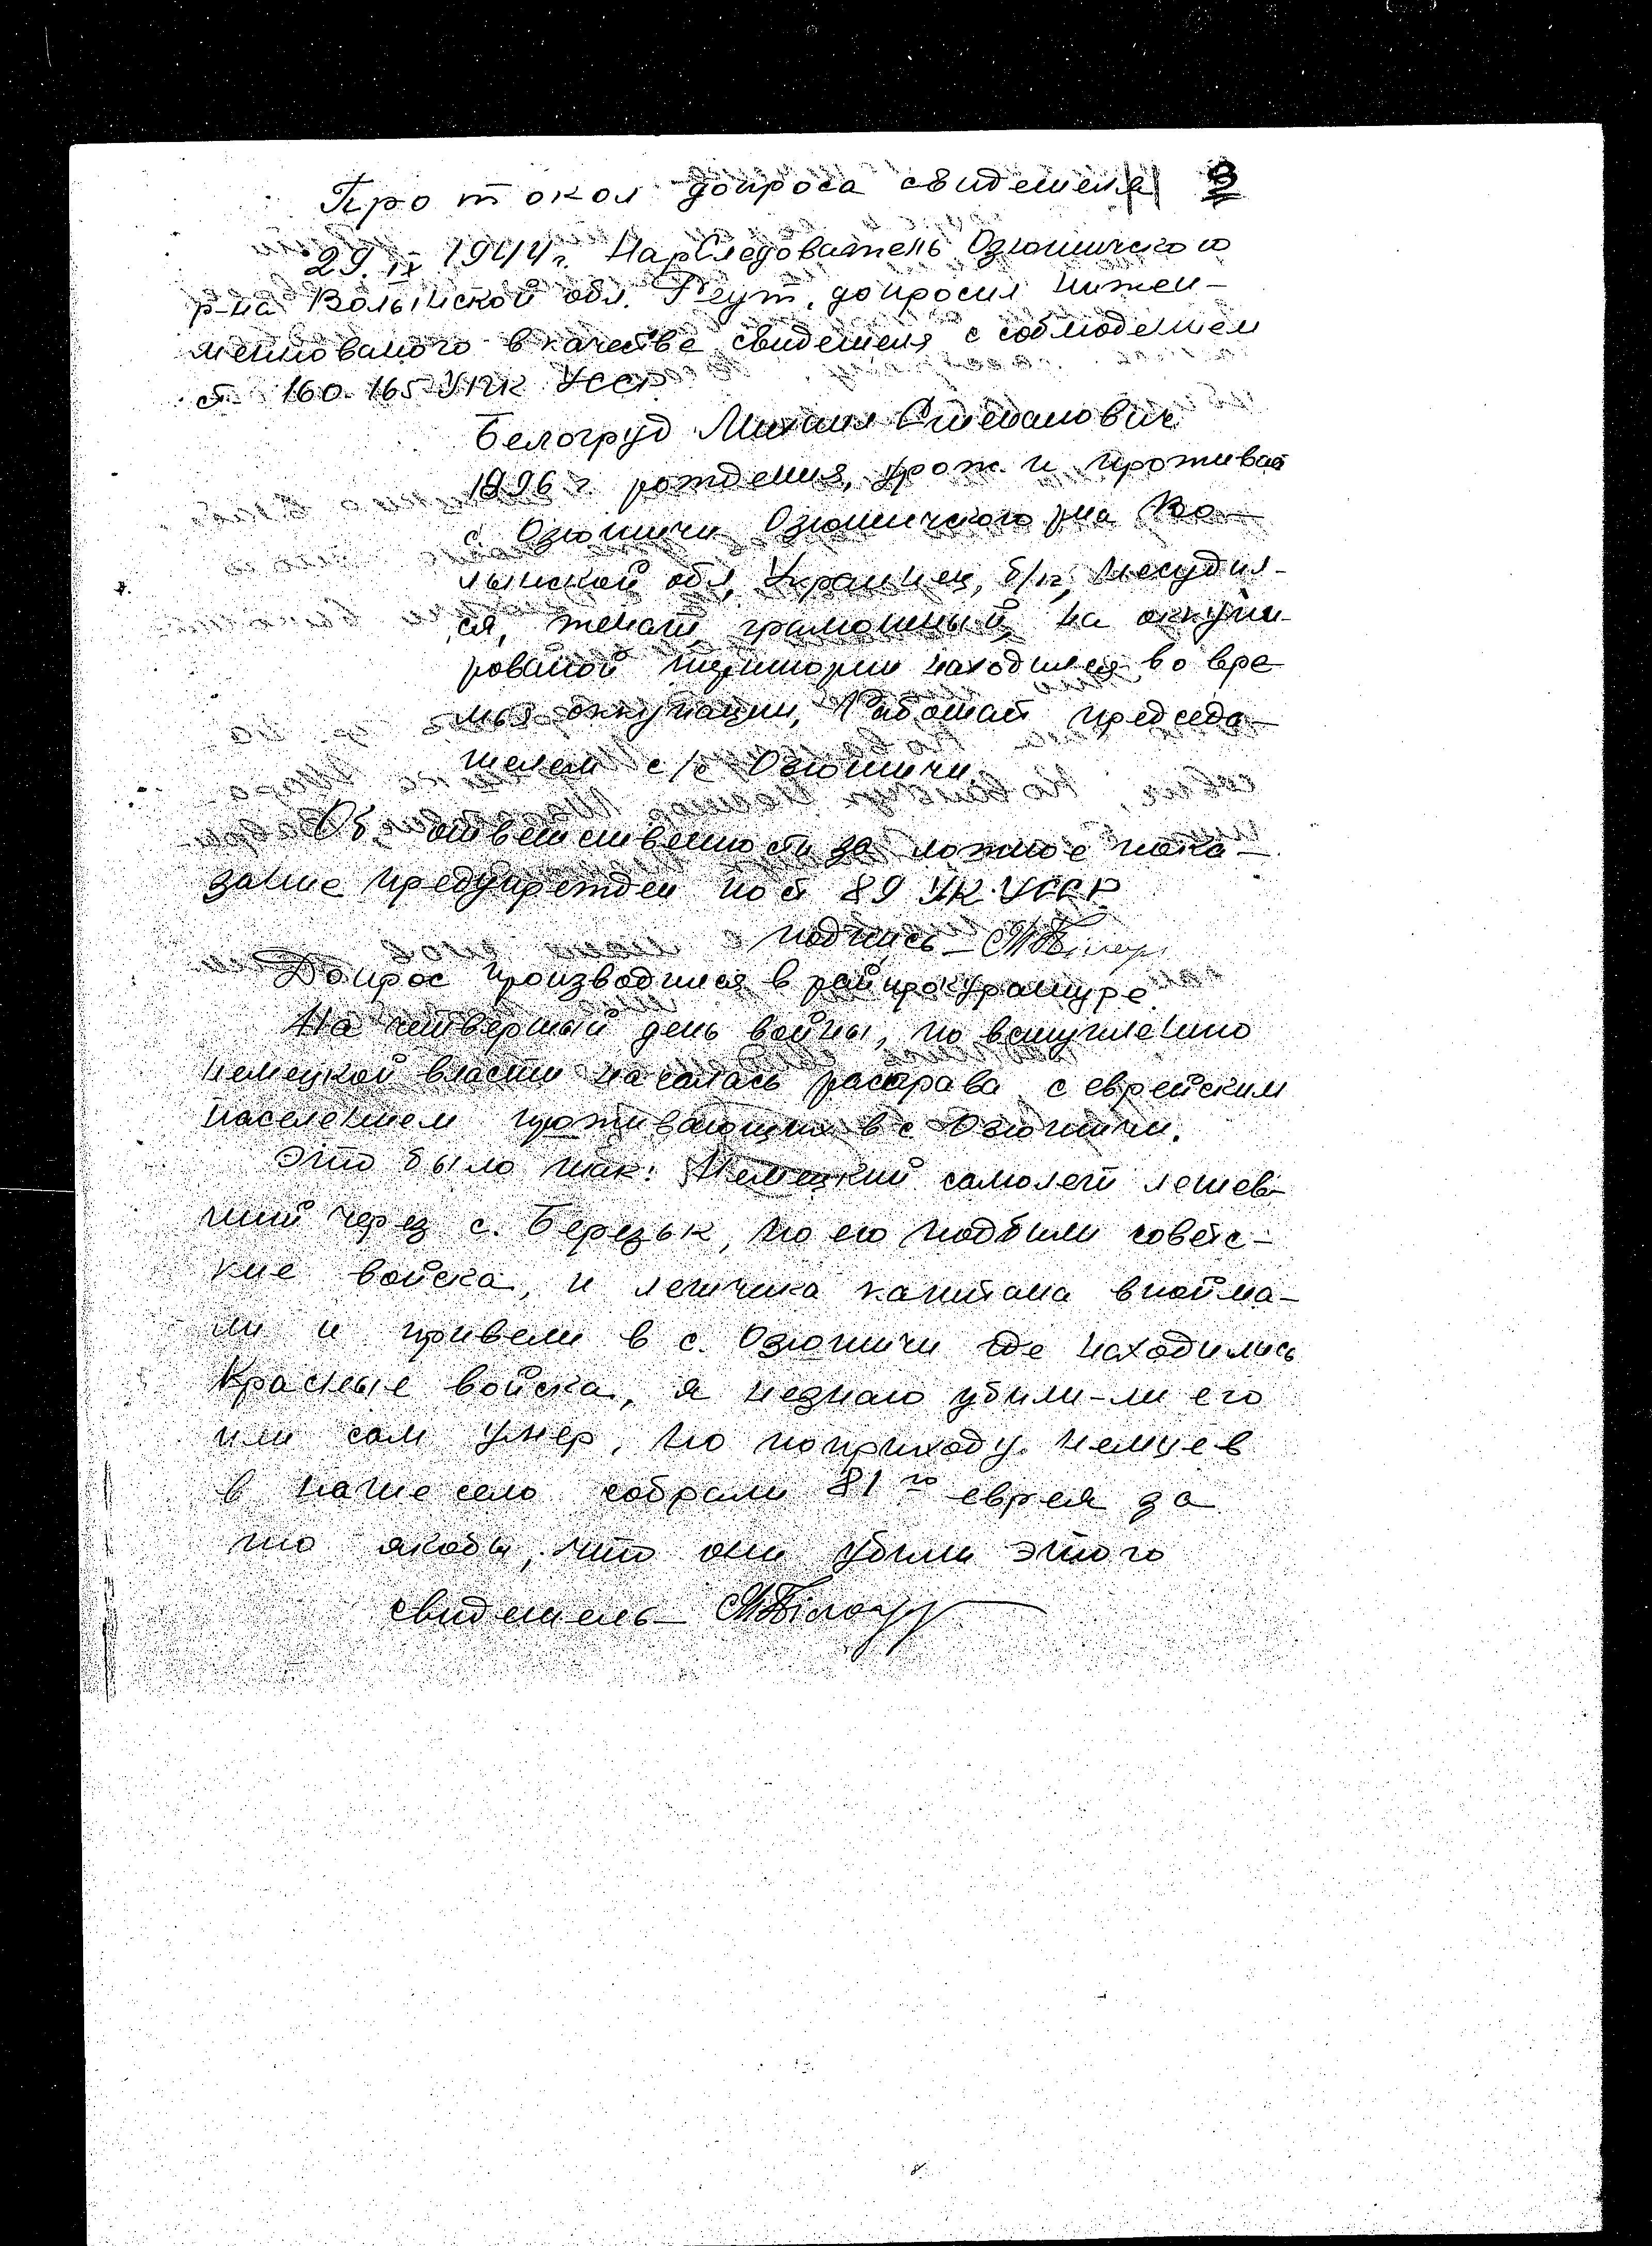 Протокол допроса свидетеля 9
29.IX 1944 г. НарСледователь Озютичского
р-на Волынской обл. Реут, допросил нижеи-
менованого в качестве свидетеля с соблюдением
ст 160-165 УПК УССР.
Белогруд Михаил Степанович
1896 г рождения, урож. и проживает
с. Озютичи Озютичского р-на Во-
лынской обл, Украинец, б/п, несудил-
ся, женат, грамотный, на оккупи-
рованой територии находился во вре-
мья оккупации, Работает председа-
телем с/с Озютичи.
Об ответственности за ложное пока-
зание предупрежден по ст 89 УК УССР.
подпись –
Допрос производился в райпрокуратуре.
На четвертый день войны, по вступлению
немецкой власти началась расправа с еврейским
населением проживающих в с Озютичи.
Это было так: Немецкий самолет летев-
ший через с. Березък, но его подбили советс-
кие войска, и летчика капитана впойма-
ли и привели в с. Озютичи где находились
Красные войска, я незнаю убили-ли его
или сам умер, но поприходу немцев
в наше село собрали 81го еврея за
то якобы, что они убили этого
свидетель – М Білогруд